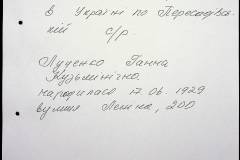 в Україні по Пересадівсь-
кій с/р.
Луценко Ганна
Кузьмінічна
народилась 17.06.1929
вулиця Леніна, 200